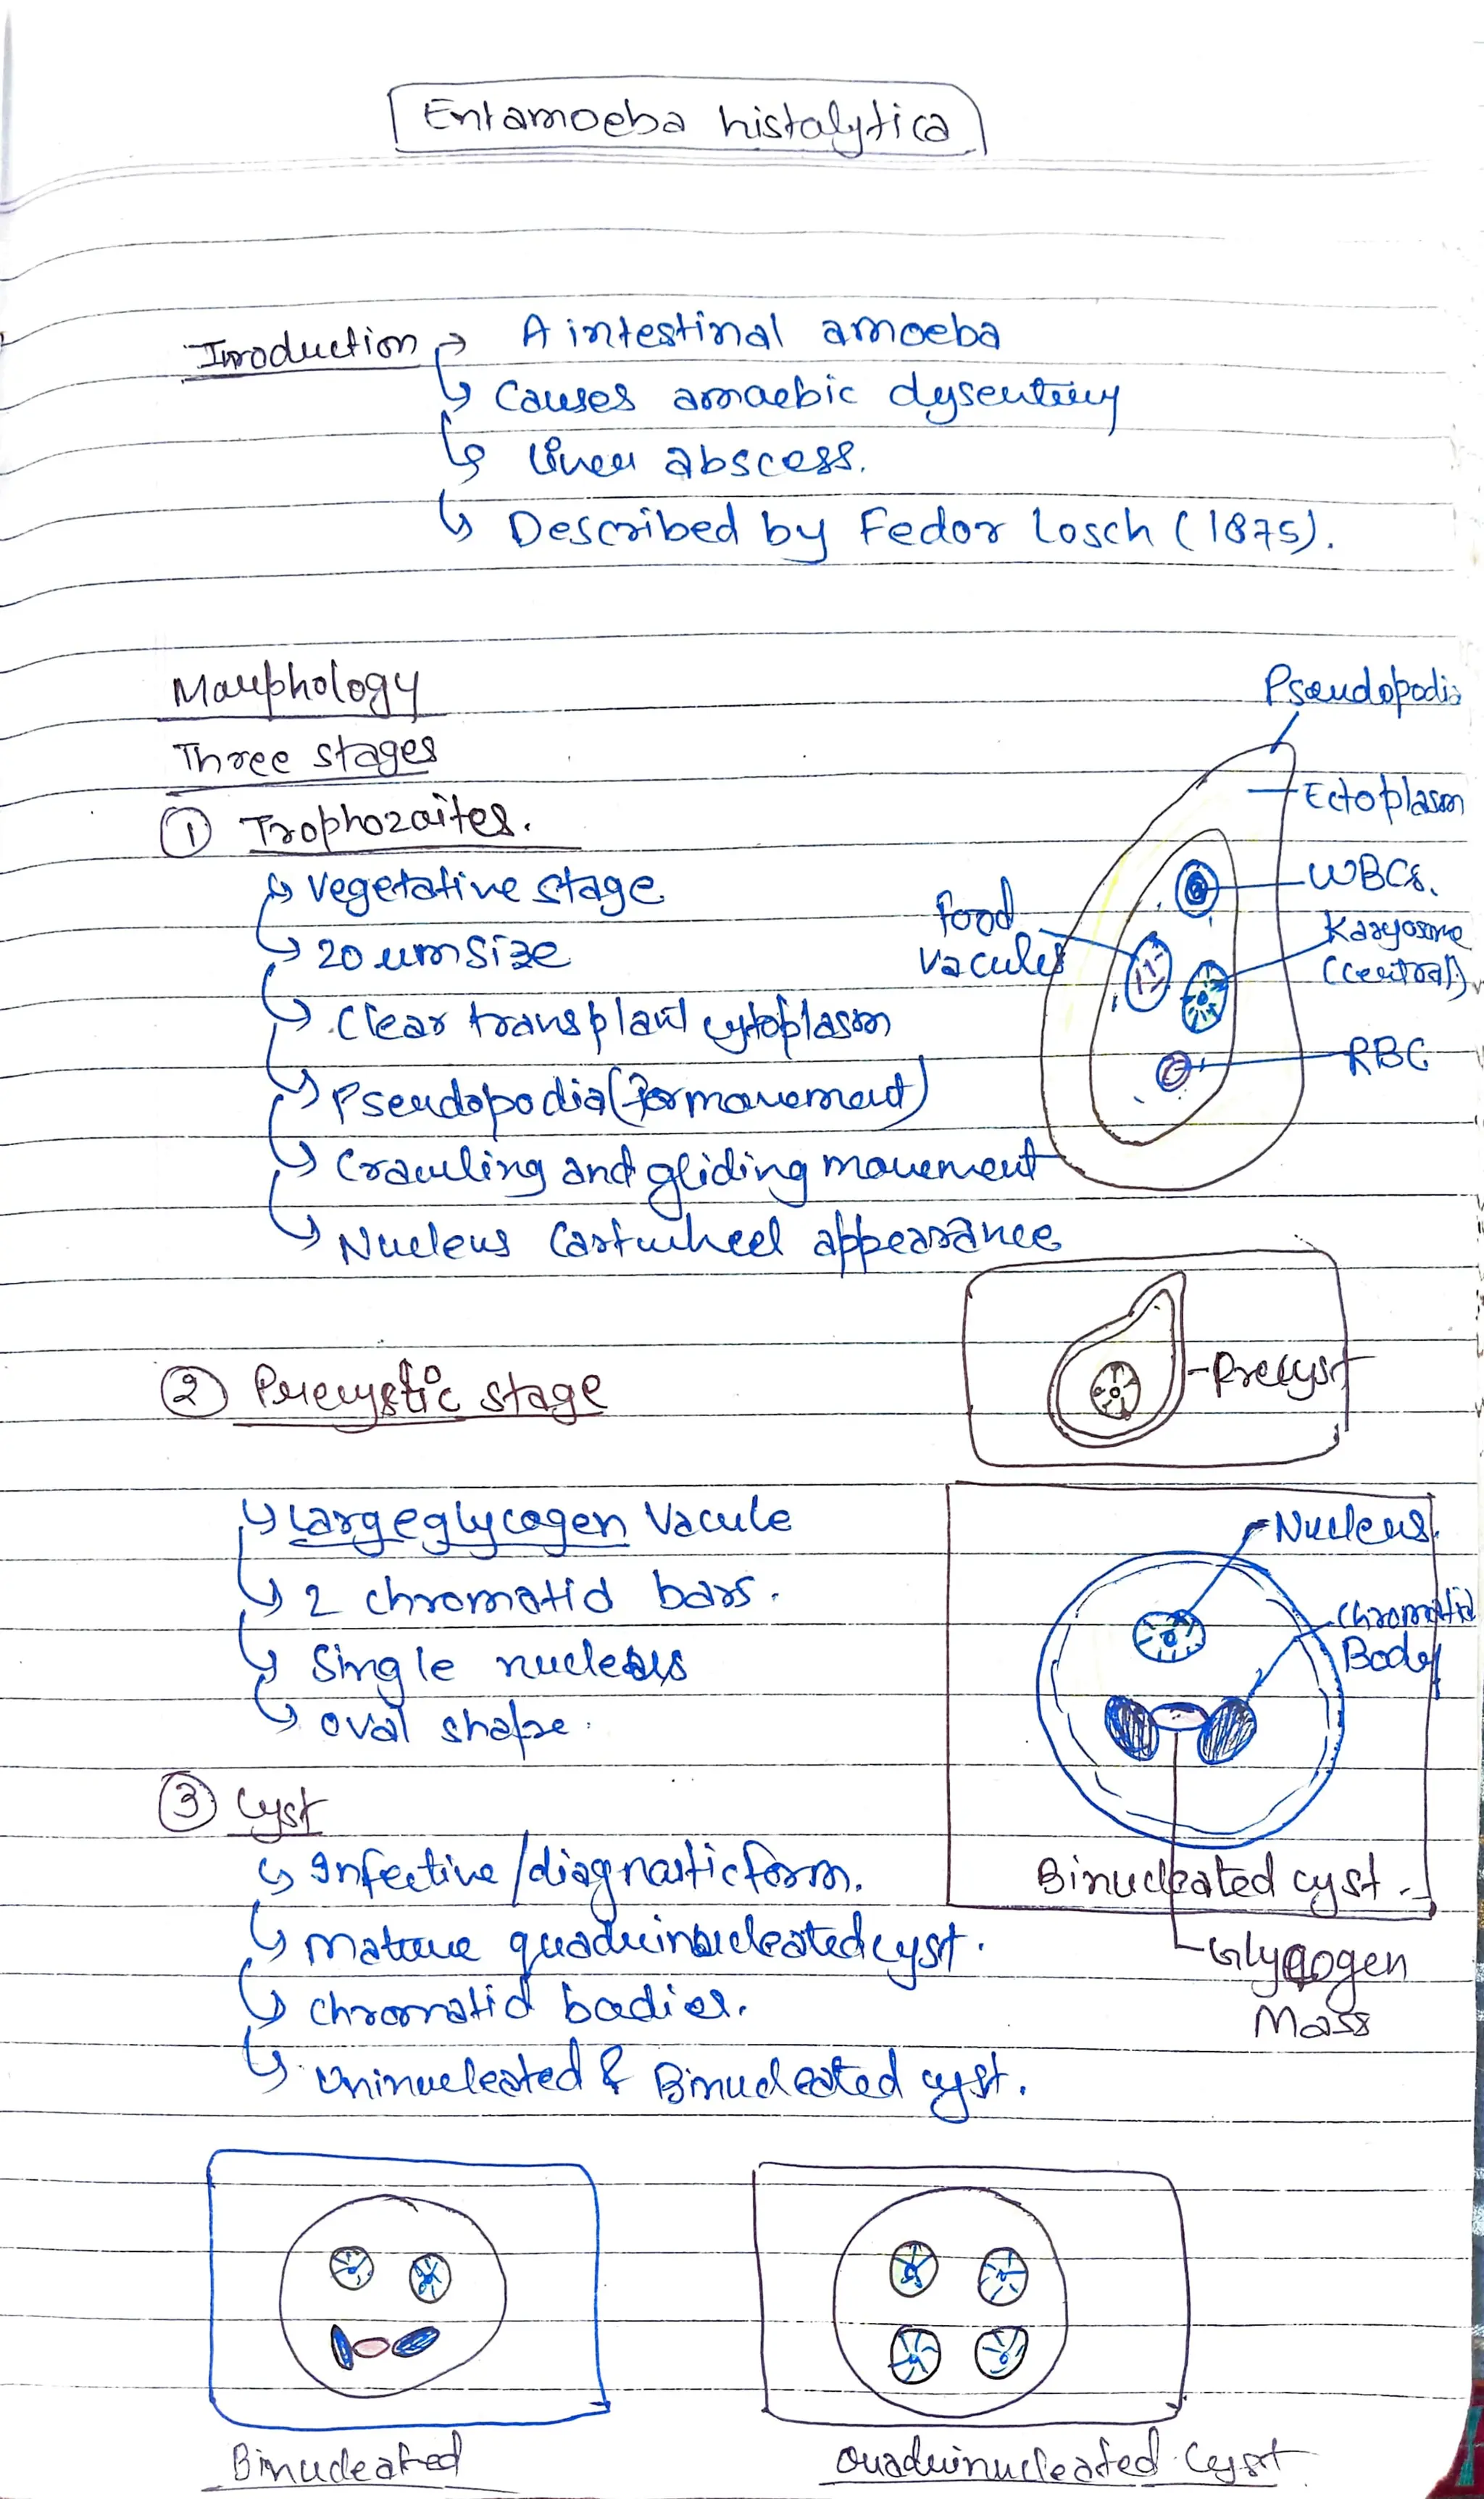 Entamoeba histalytica
Inroduction → A intestinal amoeba
↳ Causes amaebic dysentery
↳ Liver abscess.
↳ Described by Fedor Losch (1875).
Morphology
Three stages
① Trophozoites.
↳ Vegetative stage
↳ 20 um size
↳ Clear transplant cytoplasm
↳ Pseudopodia (For movement)
↳ Crawling and gliding movement
↳ Nucleus Cartwheel appearance
Pseudopodia
Ectoplasm
WBCs.
Food
Vacules
Karyosome
(central)
RBC
② Precystic stage
Precyst
↳ Large glycogen Vacule
↳ 2 chromatid bars.
↳ Single nucleus
↳ oval shape.
Nucleus.
Chromatid
Body
Binucleated cyst.
Glycogen
Mass
③ Cyst
↳ Infective/diagnostic form.
↳ Mature quadrinucleated cyst.
↳ Chromatid bodies.
↳ Uninucleated & Binucleated cyst.
Binucleated
Quadrinucleated Cyst